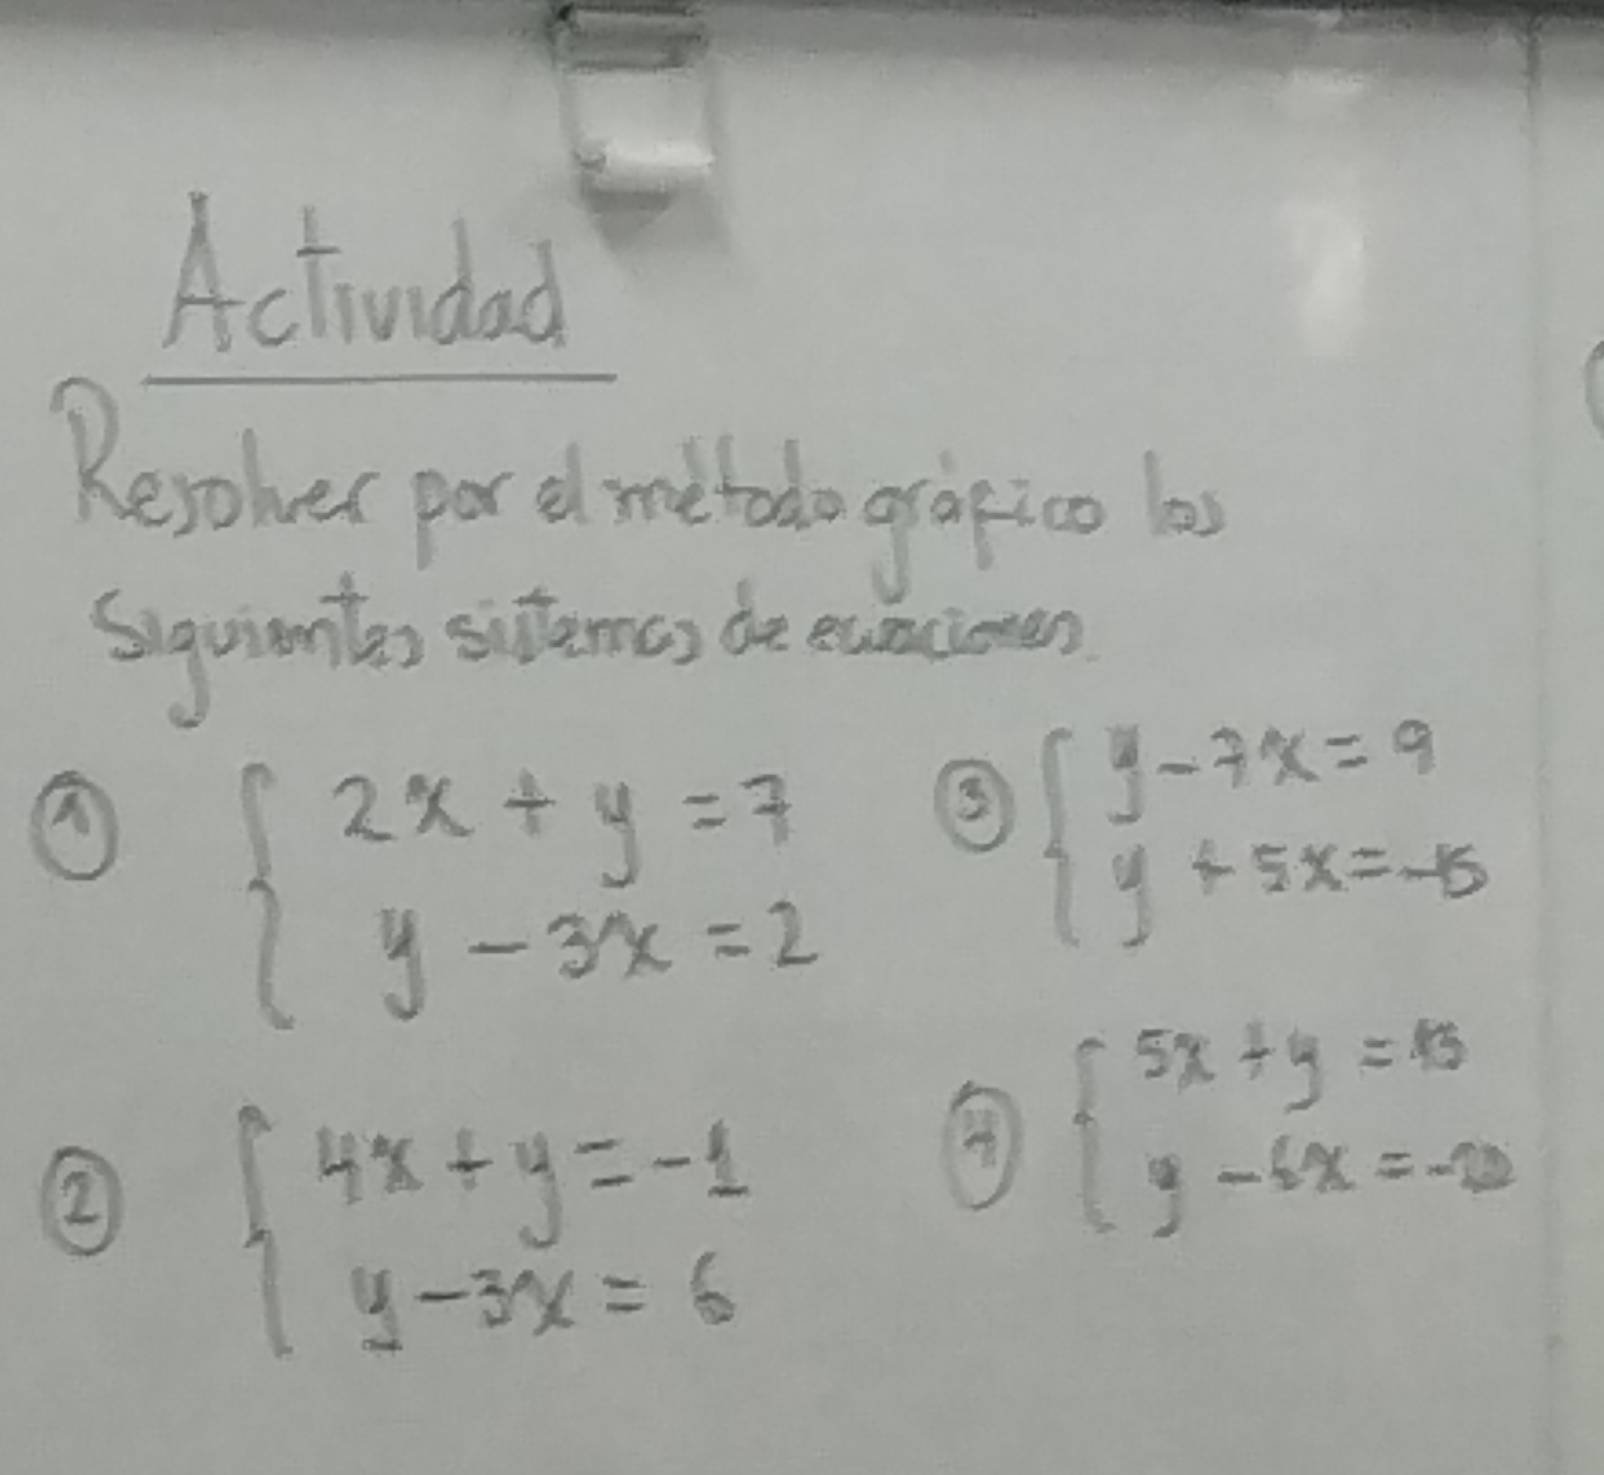 Actividad
Resolver por el método gráfico los
siguientes sistemas de ecuaciones.
① { 2x + y = 7
y - 3x = 2
② { 4x + y = -1
y - 3x = 6
③ { y - 7x = 9
y + 5x = -15
④ { 5x + y = 13
y - 6x =